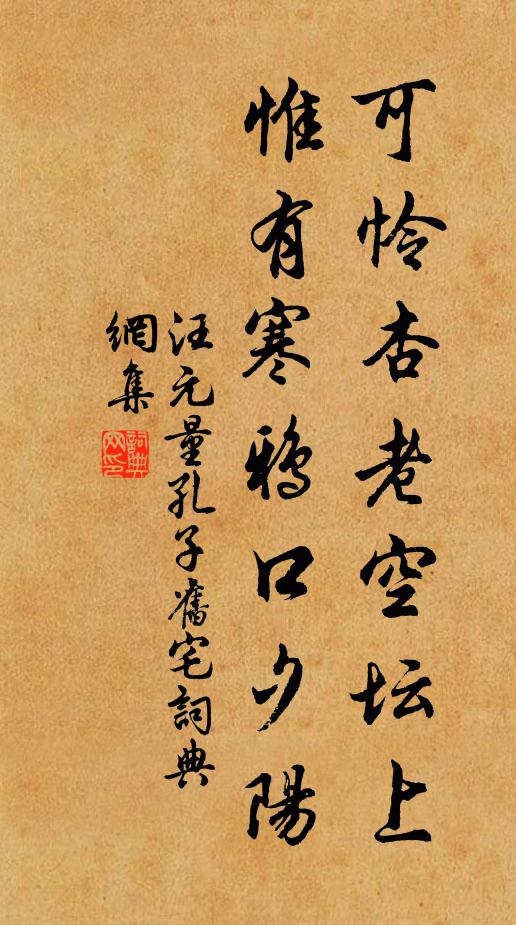 可怜杏老空坛上
惟有寒鸦口夕陽
汪元量孔子舊宅詞典
網集
詞典網印